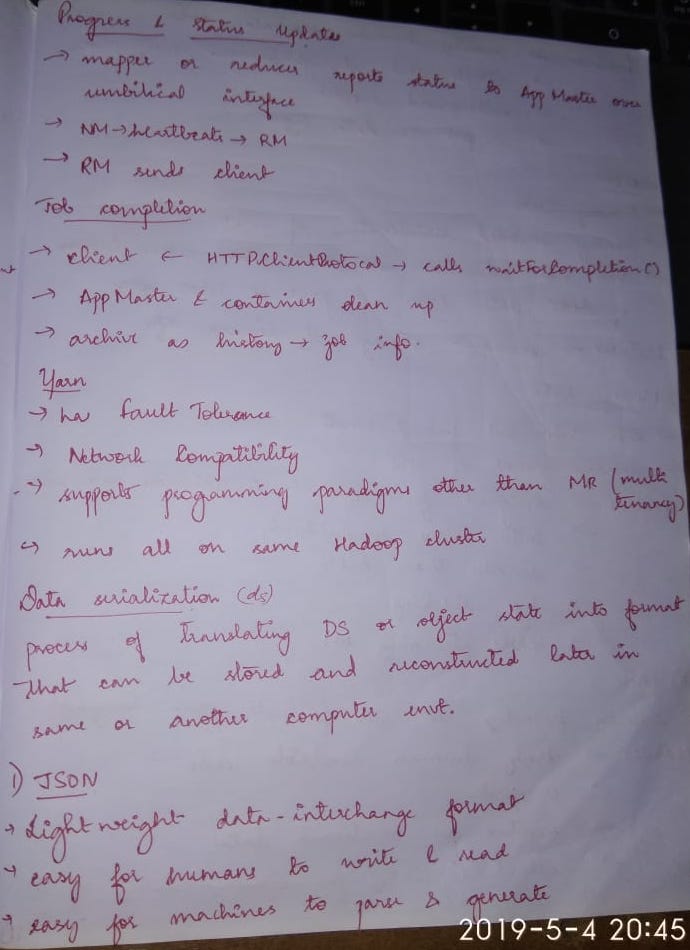 Progress & status updates
→ mapper or reducer reports status to App Master over
umbilical interface
→ NM → heartbeats → RM
→ RM sends client
Job completion
→ client ← HTTPClientProtocal → calls waitForCompletion()
→ App Master & containers clean up
→ archive as history → job info.
Yarn
→ ha fault Tolerance
→ Network Compatibility
→ supports programming paradigms other than MR (multi
tenancy)
↪ runs all on same Hadoop cluster
Data serialization (ds)
process of translating DS or object state into format
that can be stored and reconstructed later in
same or another computer envt.
1) JSON
→ Lightweight data-interchange format
→ easy for humans to write & read
→ easy for machines to parse & generate
2019-5-4 20:45